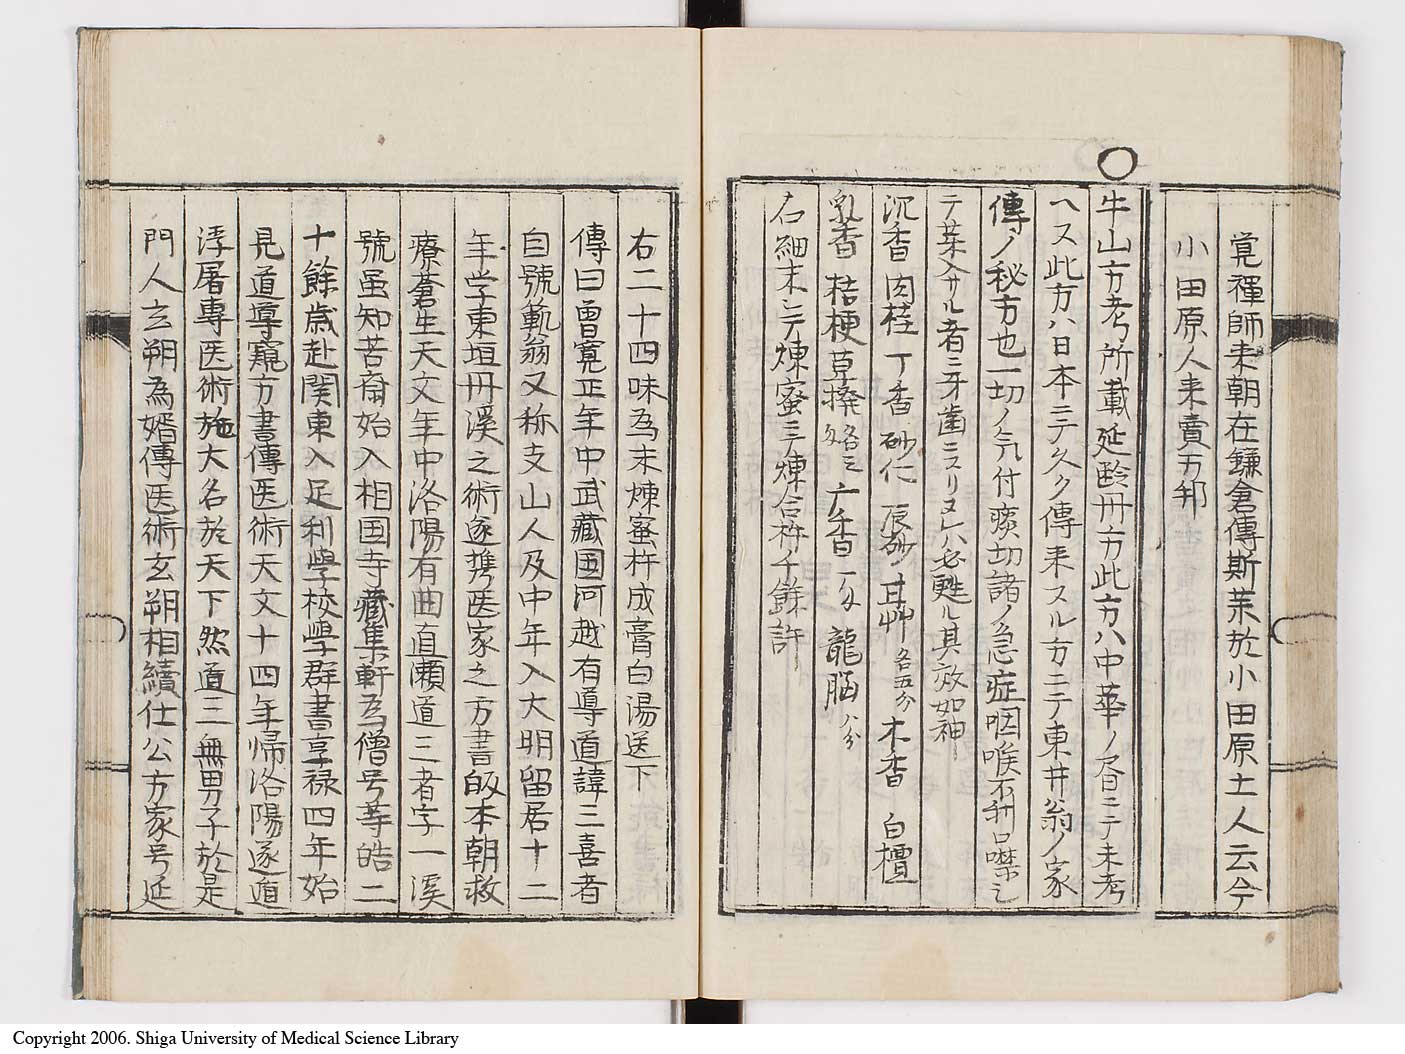 覚禪師来朝在鎌倉傳斯薬於小田原土人云今
小田原人来賣万邦
牛山方考所載延齢丹方此方ハ中華ノ書ニテ未考
ヘス此方ハ日本ニテ久ク傳来スル方ニテ東井翁ノ家
傳ノ秘方也一切ノ気付痰切諸ノ急症咽喉不利口噤シ
テ薬入サル者ニ牙歯ニスリヌレハ必甦ル其效如神
沉香 肉桂 丁香 砂仁 辰砂 甘艸 各五分 木香 白檀
乳香 桔梗 蓽撥 各三匁 广香 一匁 龍脳 八分
右細末シテ煉蜜ニテ煉合杵千餘許
右二十四味為末煉蜜杵成膏白湯送下
傳曰曽寛正年中武藏国河越有導道諱三喜者
自號範翁又称支山人及中年入大明留居十二
年学東垣丹溪之術遂携医家之方書皈本朝救
療蒼生天文年中洛陽有曲直瀬道三者字一溪
號虽知苦斎始入相国寺藏集軒為僧号等皓二
十餘歳赴関東入足利學校學群書享禄四年始
見道導窺方書傳医術天文十四年帰洛陽遂遁
浮屠專医術施大名於天下然道三無男子於是
門人玄朔為婿傳医術玄朔相續仕公方家号延
Copyright 2006. Shiga University of Medical Science Library